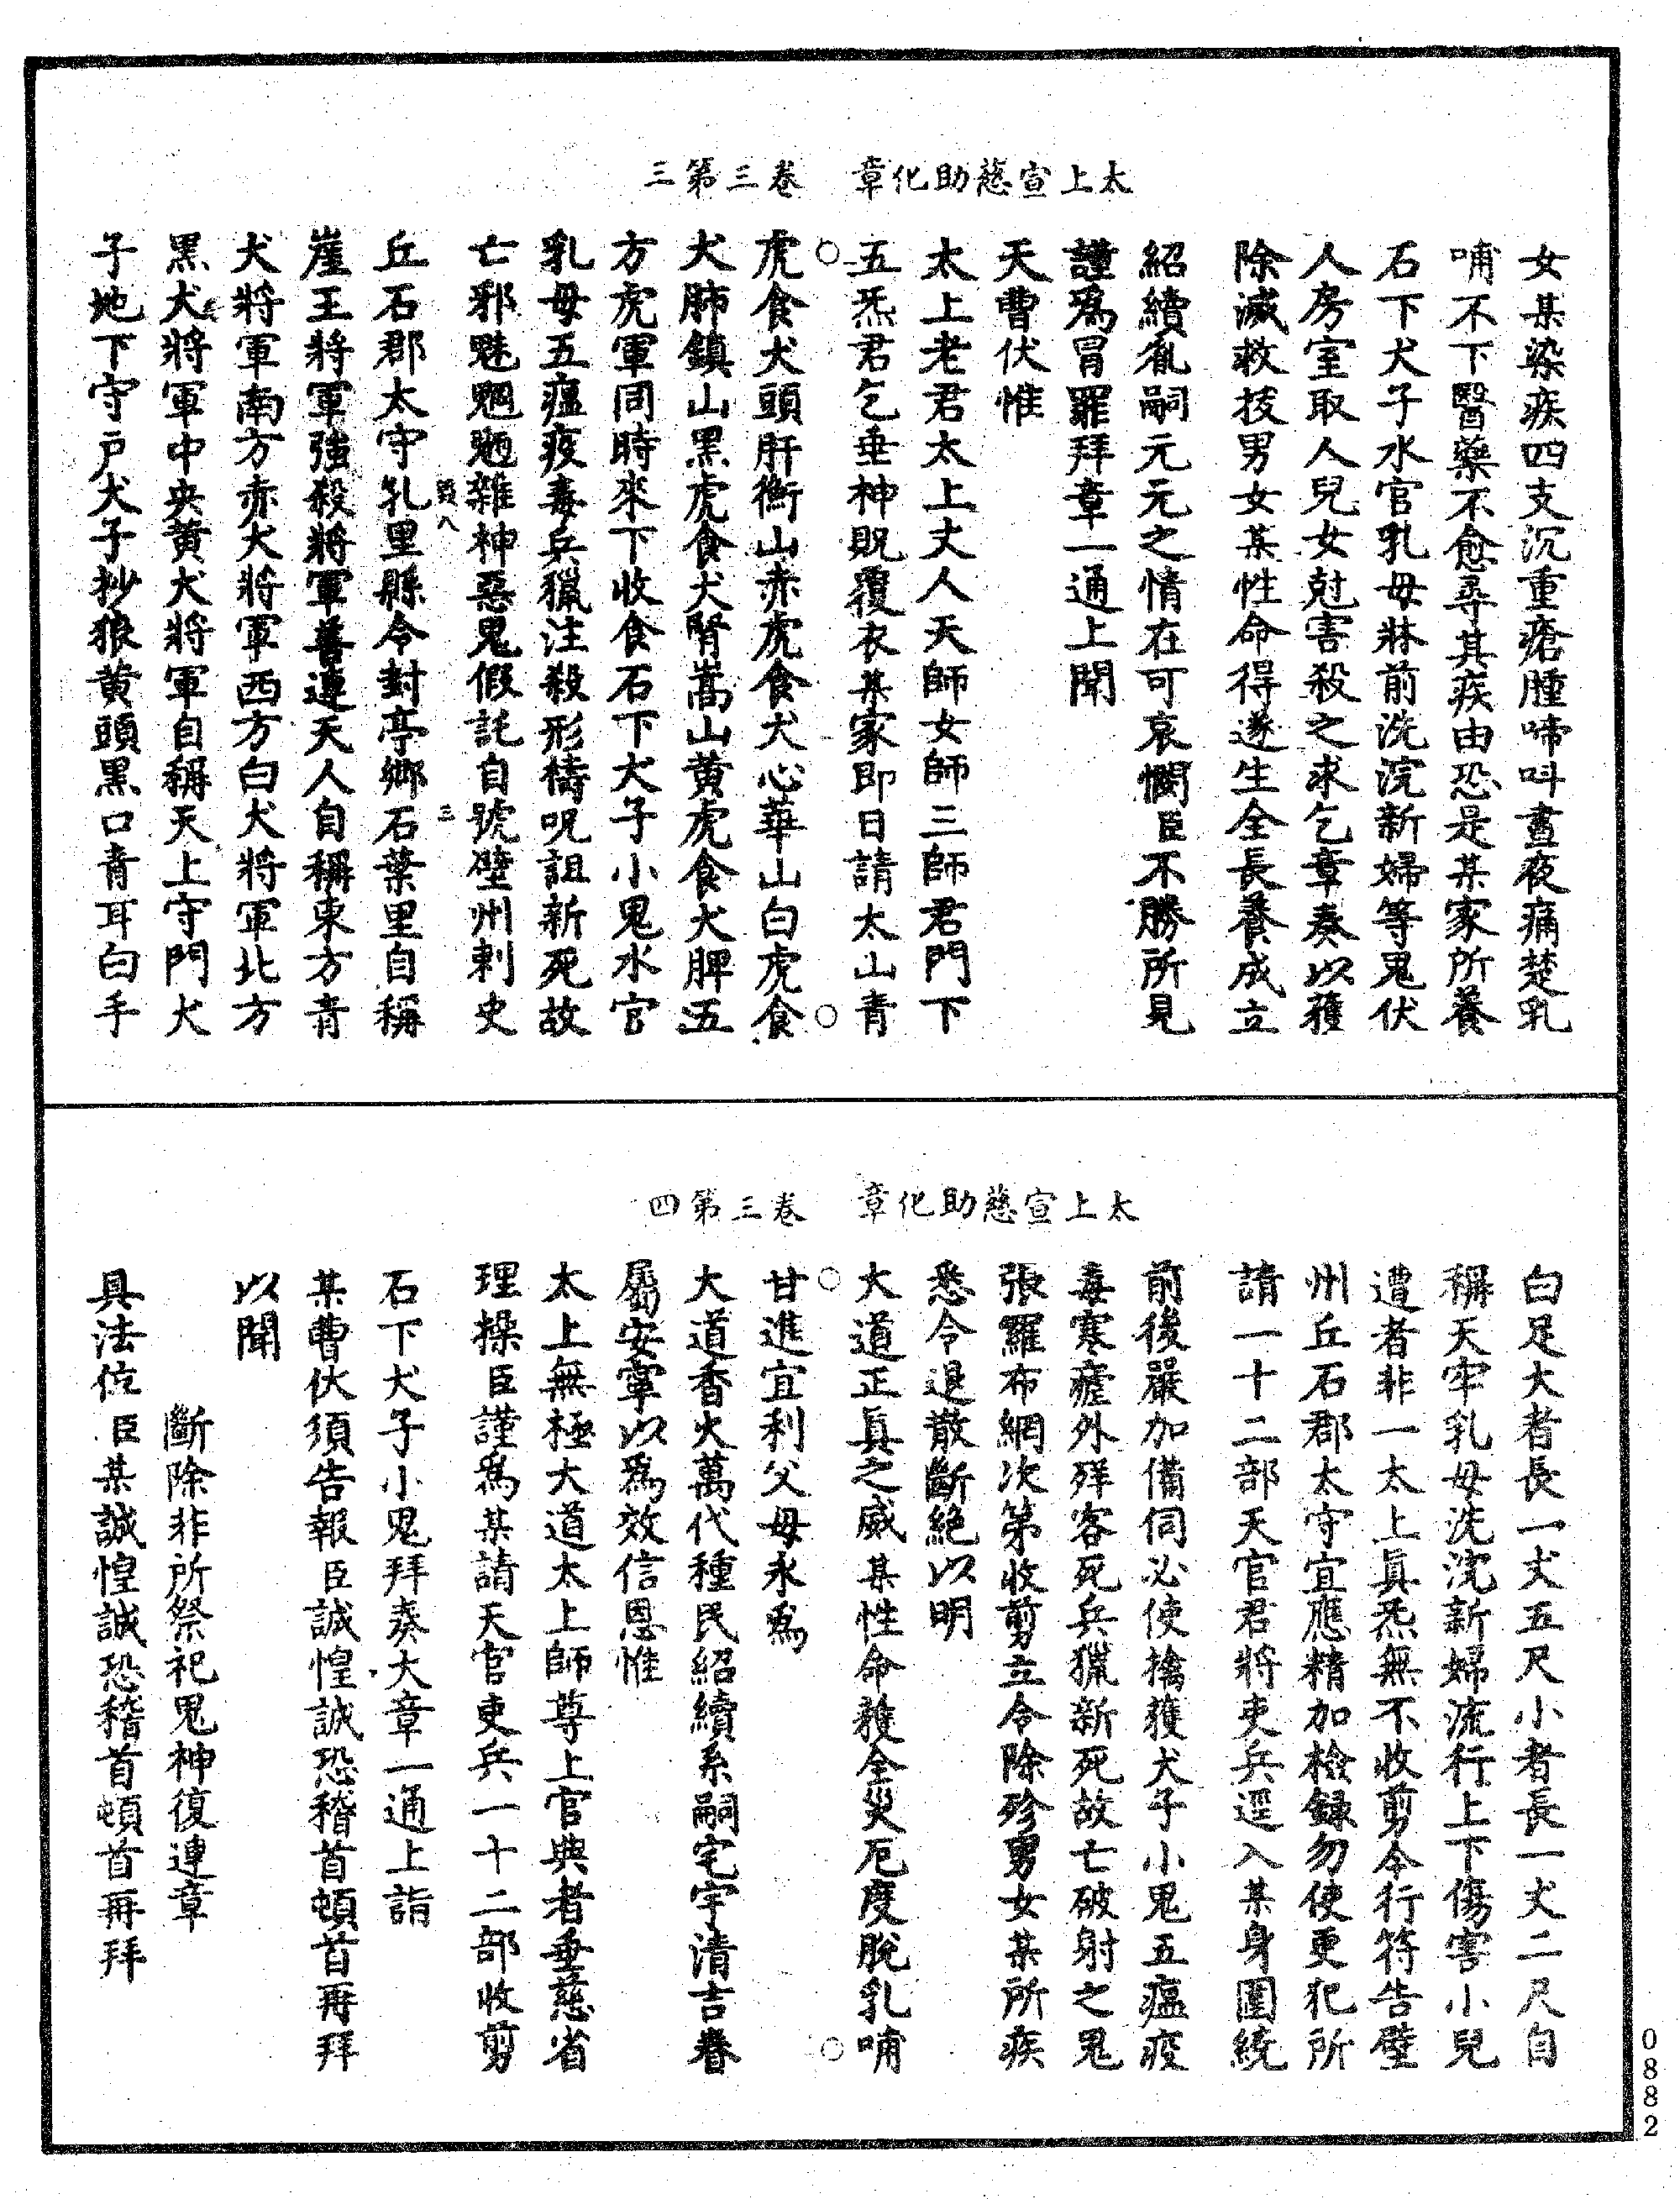 太上宣慈助化章　卷三第三
女某染疾四支沉重瘡腫啼呌晝夜痛楚乳
哺不下醫藥不愈尋其疾由恐是某家所養
石下犬子水官乳母牀前洗浣新婦等鬼伏
人房室取人兒女尅害殺之求乞章奏以獲
除滅救拔男女某性命得遂生全長養成立
紹續胤嗣元元之情在可哀憫臣不勝所見
謹爲冒罪拜章一通上聞
天曹伏惟
太上老君太上丈人天師女師三師君門下
五炁君乞垂神貺覆衣某家即日請太山青
虎食犬頭肝衡山赤虎食犬心華山白虎食
犬肺鎮山黑虎食犬腎嵩山黄虎食犬脾五
方虎軍同時來下收食石下犬子小鬼水官
乳母五瘟疫毒兵獵注殺形禱呪詛新死故
亡邪魅魍魎雜神惡鬼假託自號壁州刺史
八　三
丘石郡太守乳里縣令封亭鄉石葉里自稱
崖王將軍強殺將軍善連天人自稱東方青
犬將軍南方赤犬將軍西方白犬將軍北方
黑犬將軍中央黄犬將軍自稱天上守門犬
子地下守戸犬子抄狼黄頭黑口青耳白手
太上宣慈助化章　卷三第四
白足大者長一丈五尺小者長一丈二尺自
稱天牢乳母洗浣新婦流行上下傷害小兒
遭者非一太上真炁無不收剪今行符告壁
州丘石郡太守宜應精加檢録勿使更犯所
請一十二部天官君將吏兵逕入某身圍繞
前後嚴加備伺必使擒獲犬子小鬼五瘟疫
毒寒瘧外殃客死兵獵新死故亡破射之鬼
張羅布網次第收剪立令除殄男女某所疾
悉令退散斷絶以明
大道正真之威某性命獲全災厄度脫乳哺
甘進宜利父母永爲
大道香火萬代種民紹續系嗣宅宇清吉眷
屬安寧以爲效信恩惟
太上無極大道太上師尊上官典者垂慈省
理操臣謹爲某請天官吏兵一十二部收剪
石下犬子小鬼拜奏大章一通上詣
某曹伏須告報臣誠惶誠恐稽首頓首再拜
以聞
斷除非所祭祀鬼神復連章
具法位臣某誠惶誠恐稽首頓首再拜
0882